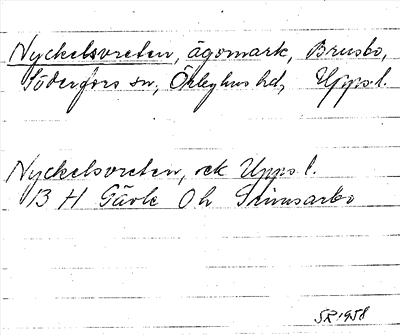 Nyckelsvreten, ägomark, Brusbo,
Söderfors sn, Örbyhus hd, Upps.l.
Nyckelsvreten, ek Upps l.
13 H Gävle 0 h
SR 1958